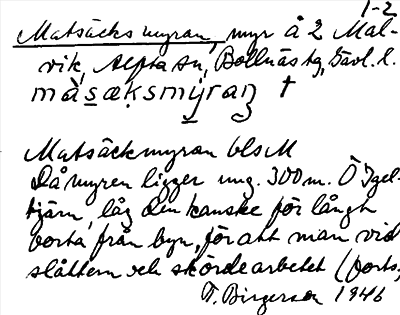 1-2
Matsäcksmyran, myr å 2 Mal-
vik, Alfta sn, Bollnäs tg, Gävl. l.
mà̀sæksmyran †
Matsäckmyran blsM
Då myren ligger ung. 300 m. Ö Igel-
tjärn, låg den kanske för långt
borta från byn, för att man vid
slåttern och skördearbetet (forts,
F. Birgerson 1946